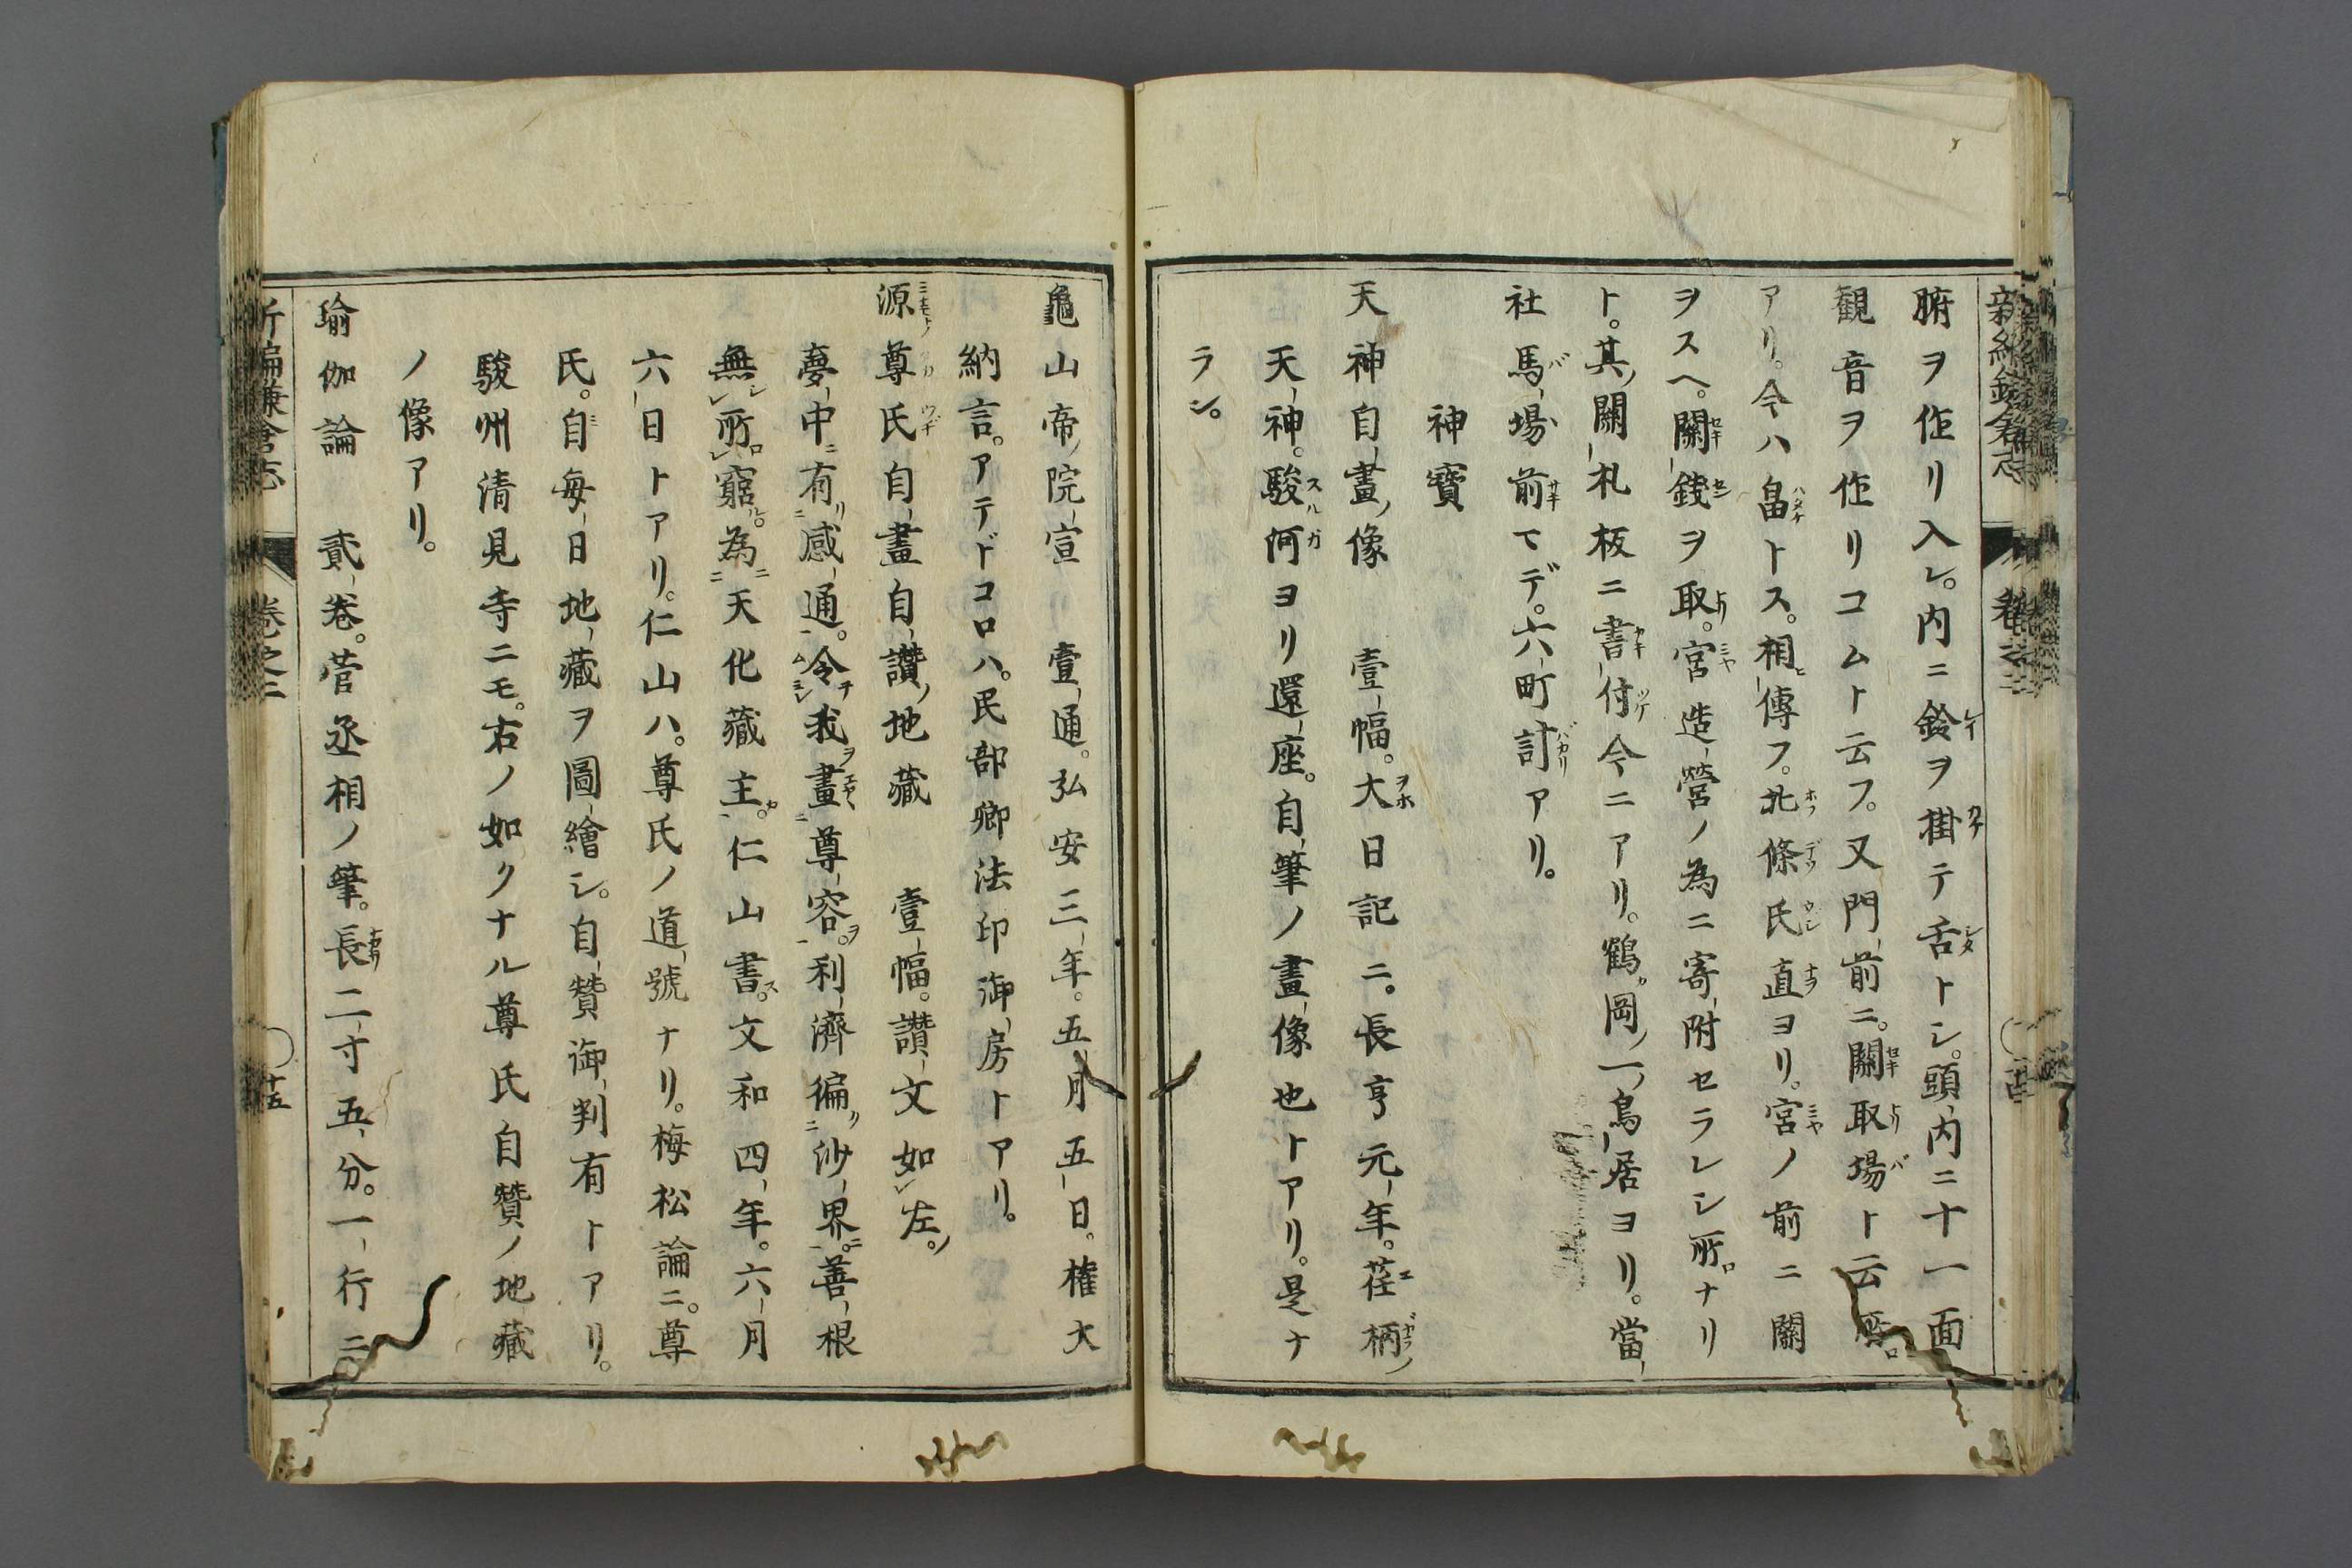 新編鎌倉志 卷之二
腑ヲ作リ入レ。内ニ鈴ヲ掛テ舌トシ。頭内ニ十一面
観音ヲ作リコムト云フ。又門前ニ。關取場ト云所
アリ。今ハ畠トス。相傳フ。北條氏直ヨリ。宮ノ前ニ關
ヲスヘ。關錢ヲ取。宮造營ノ為ニ寄附セラレシ所ナリ
ト。其關札板ニ書付今ニアリ。鶴岡一鳥居ヨリ。當
社馬場前マデ。六町計アリ。
神寳
天神自畫像 壹幅。大日記ニ。長亨元年。荏柄
天神。駿河ヨリ還座。自筆ノ畫像也トアリ。是ナ
ラシ。
龜山帝院宣 壹通。弘安三年。五月五日。權大
納言。アテドコロハ。民部卿法印御房トアリ。
源尊氏自畫自讚地藏 壹幅。讚文如左。
夢中有感通。令我畫尊容。利濟徧沙界。善根
無所窮。為天化藏主。仁山書。文和四年。六月
六日トアリ。仁山ハ。尊氏ノ道號ナリ。梅松論ニ。尊
氏。自毎日地藏ヲ圖繪シ。自贊御判有トアリ。
駿州清見寺ニモ。右ノ如クナル尊氏自贊ノ地藏
ノ像アリ。
瑜伽論 貳卷。菅丞相ノ筆。長二寸五分。一行ニ
新編鎌倉志 卷之二 十五